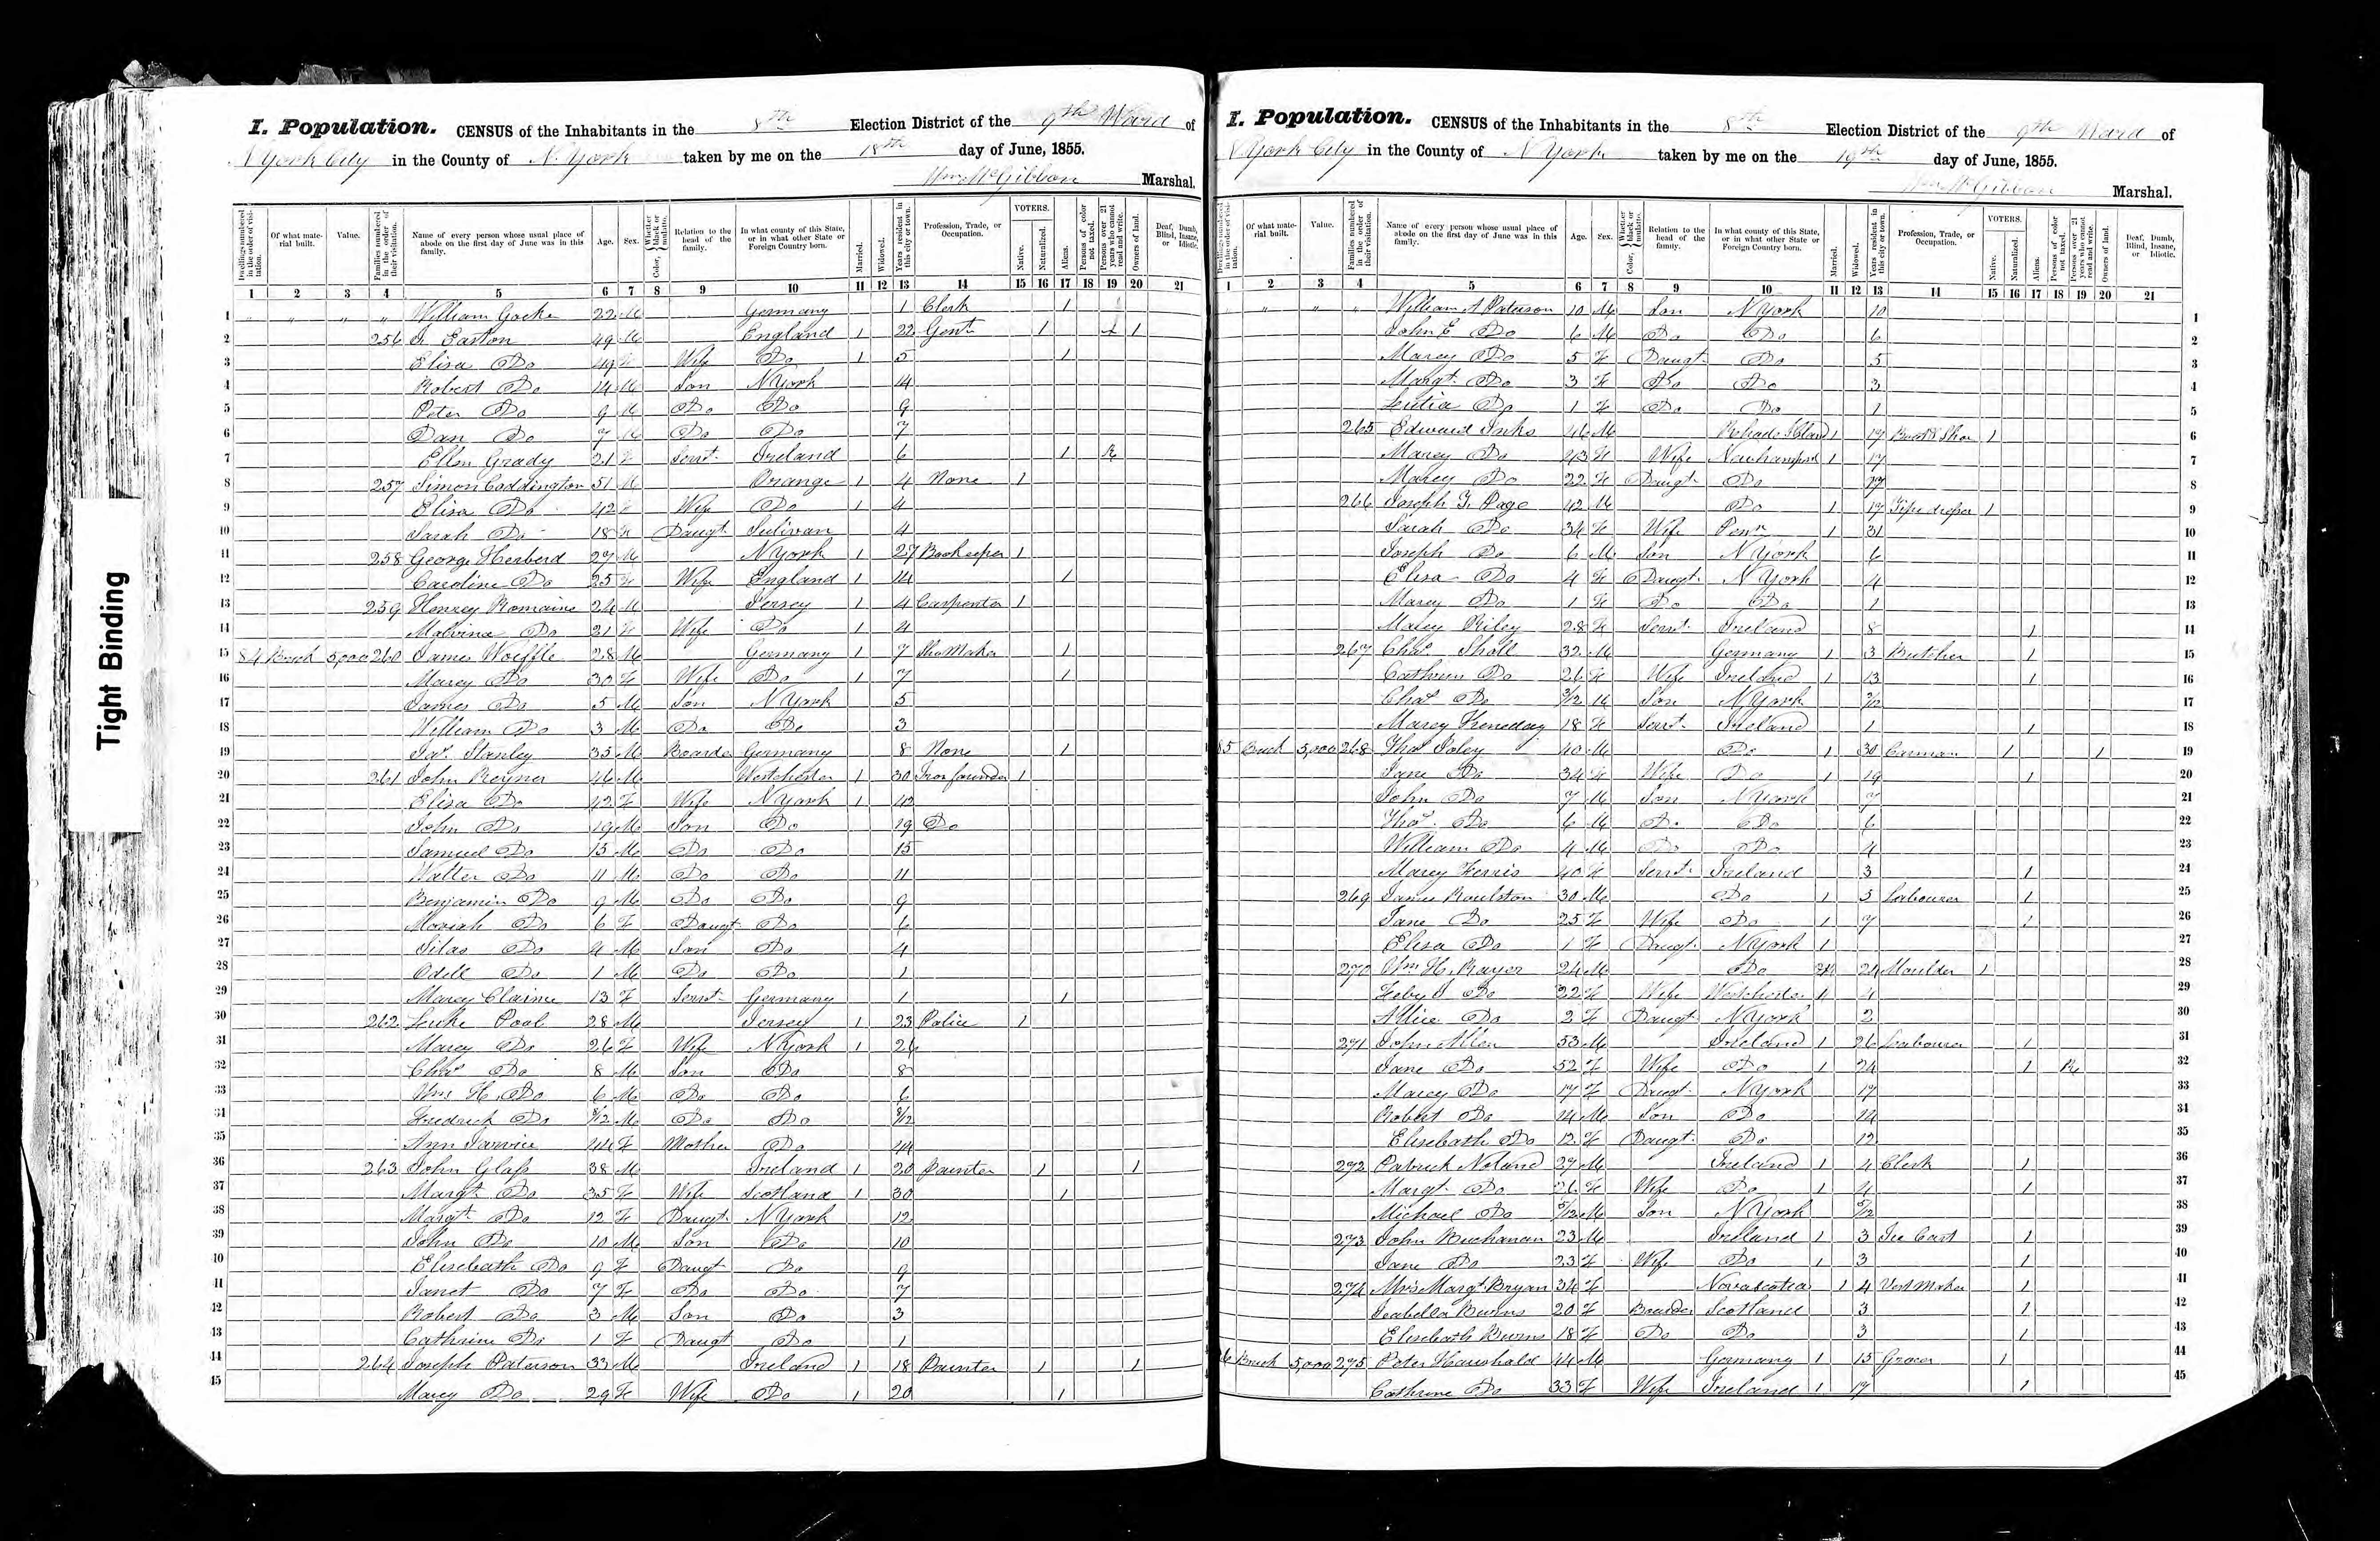 Tight Binding
I. Population. CENSUS of the Inhabitants in the 8th Election District of the 9th Ward of
N York City in the County of N. York taken by me on the 18th day of June, 1855.
Wm McGibbon Marshal.
Dwellings numbered in the order of visitation. Of what material built. Value. Families numbered in the order of their visitation. Name of every person whose usual place of abode on the first day of June was in this family. Age. Sex. Color, Whether black or mulatto. Relation to the head of the family. In what county of this State, or in what other State or Foreign Country born. Married. Widowed. Years resident in this city or town. Profession, Trade, or Occupation. VOTERS. Native. Naturalized. Aliens. Persons of color not taxed. Persons over 21 years who cannot read and write. Owners of land. Deaf, Dumb, Blind, Insane, or Idiotic.
1 2 3 4 5 6 7 8 9 10 11 12 13 14 15 16 17 18 19 20 21
1 " " " " William Gocke 22 M Germany 1 Clerk 1
2 256 Easton 49 M England 1 22 Gent 1 1
3 Elisa Do 49 F Wife Do 1 5 1
4 Robert Do 14 M Son N York 14
5 Peter Do 9 M Do Do 9
6 Dan Do 7 M Do Do 7
7 Ellen Grady 21 F Servt Ireland 6 1 R
8 257 Simon Coddington 51 M Orange 1 4 None 1
9 Elisa Do 42 F Wife Do 1 4
10 Sarah Do 18 F Daugt Sulivan 4
11 258 George Herberd 27 M N York 1 27 Bookeeper 1
12 Caroline Do 25 F Wife England 1 14 1
13 259 Henrey Romaine 24 M Jersey 1 4 Carpenter 1
14 Malvina Do 21 F Wife Do 1 4
15 84 Brick 5,000 260 James Woeffle 28 M Germany 1 7 Shoe Maker 1
16 Marey Do 30 F Wife Do 1 7 1
17 James Do 5 M Son N York 5
18 William Do 3 M Do Do 3
19 Jas Stanley 35 M Boarder Germany 8 None 1
20 261 John Reyner 46 M Westchester 1 30 Iron founder 1
21 Elisa Do 42 F Wife N York 1 42
22 John Do 19 M Son Do 19 Do
23 Samuel Do 15 M Do Do 15
24 Walter Do 11 M Do Do 11
25 Benjamin Do 9 M Do Do 9
26 Moriah Do 6 F Daugt Do 6
27 Silas Do 4 M Son Do 4
28 Odell Do 1 M Do Do 1
29 Marey Claime 13 F Servt Germany 1 1
30 262 Luke Poal 28 M Jersey 1 23 Police 1
31 Marey Do 26 F Wife N York 1 26
32 Chas Do 8 M Son Do 8
33 Wm H. Do 6 M Do Do 6
34 Fredrick Do 8/12 M Do Do 8/12
35 Ann Jarvice 44 F Mother Do 44
36 263 John Glass 38 M Ireland 1 20 Painter 1 1
37 Margt Do 35 F Wife Scotland 1 30 1
38 Margt Do 12 F Daugt N York 12
39 John Do 10 M Son Do 10
40 Elisebath Do 9 F Daugt Do 9
41 Janet Do 7 F Do Do 7
42 Robert Do 3 M Son Do 3
43 Cathrine Do 1 F Daugt Do 1
44 264 Joseph Paterson 33 M Ireland 1 18 Painter 1 1
45 Marey Do 29 F Wife Do 1 20 1
I. Population. CENSUS of the Inhabitants in the 8th Election District of the 9th Ward of
N York City in the County of N York taken by me on the 19th day of June, 1855.
Wm McGibbon Marshal.
Dwellings numbered in the order of visitation. Of what material built. Value. Families numbered in the order of their visitation. Name of every person whose usual place of abode on the first day of June was in this family. Age. Sex. Color, Whether black or mulatto. Relation to the head of the family. In what county of this State, or in what other State or Foreign Country born. Married. Widowed. Years resident in this city or town. Profession, Trade, or Occupation. VOTERS. Native. Naturalized. Aliens. Persons of color not taxed. Persons over 21 years who cannot read and write. Owners of land. Deaf, Dumb, Blind, Insane, or Idiotic.
1 2 3 4 5 6 7 8 9 10 11 12 13 14 15 16 17 18 19 20 21
" " " " William A Paterson 10 M Son N York 10 1
John E Do 6 M Do Do 6 2
Marey Do 5 F Daugt Do 5 3
Margt Do 3 F Do Do 3 4
Do 1 F Do Do 1 5
265 Edward Inks 46 M Rhode Island 1 17 Boot & Shoe 1 6
Marey Do 43 F Wife Newhampsd 1 17 7
Marey Do 22 F Daugt Do 17 8
266 Joseph Page 42 M Do 1 17 1 9
Sarah Do 34 F Wife Penn 1 31 10
Joseph Do 6 M Son N York 6 11
Elisa Do 4 F Daugt N York 4 12
Marey Do 1 F Do Do 1 13
Marey Riley 28 F Servt Ireland 8 1 14
267 Chas Sholl 32 M Germany 1 3 Butcher 1 15
Cathrine Do 26 F Wife Ireland 1 13 1 16
Chas Do 3/12 M Son N York 3/12 17
Marey Keneday 18 F Servt Ireland 1 1 18
85 Brick 5,000 268 Thos Foley 40 M Do 1 30 Carman 1 1 19
Jane Do 34 F Wife Do 1 19 1 20
John Do 7 M Son N York 7 21
Thos Do 6 M Do Do 6 22
William Do 4 M Do Do 4 23
Marey Ferris 40 F Servt Ireland 3 1 24
269 James Roulston 30 M Do 1 5 Labourer 1 25
Jane Do 25 F Wife Do 1 7 1 26
Elisa Do 1 F Daugt N York 1 27
270 Wm H. Rayer 24 M Do 24 Moulder 1 28
Feby Do 22 F Wife Westchester 1 4 29
Allice Do 2 F Daugt N York 2 30
271 John Allen 53 M Ireland 1 26 Labourer 1 31
Jane Do 52 F Wife Do 1 24 1 R 32
Marey Do 17 F Daugt N York 17 33
Robert Do 14 M Son Do 14 34
Elisebath Do 12 F Daugt Do 12 35
272 Patrick Noland 27 M Ireland 1 4 Clerk 1 36
Margt Do 26 F Wife Do 1 4 1 37
Michael Do 5/12 M Son N York 5/12 38
273 John Buchanan 23 M Ireland 1 3 Ice Cart 1 39
Jane Do 23 F Wife Do 1 3 40
274 Mrs Margt Bryan 34 F Novascotea 1 4 Vest Maker 1 41
Isabella Burns 20 F Boarder Scotland 3 1 42
Elisebath Burns 18 F Do Do 3 1 43
86 Brick 5,000 275 Peter Haushald 44 M Germany 1 15 Grocer 1 44
Cathrine Do 33 F Wife Ireland 1 17 1 45